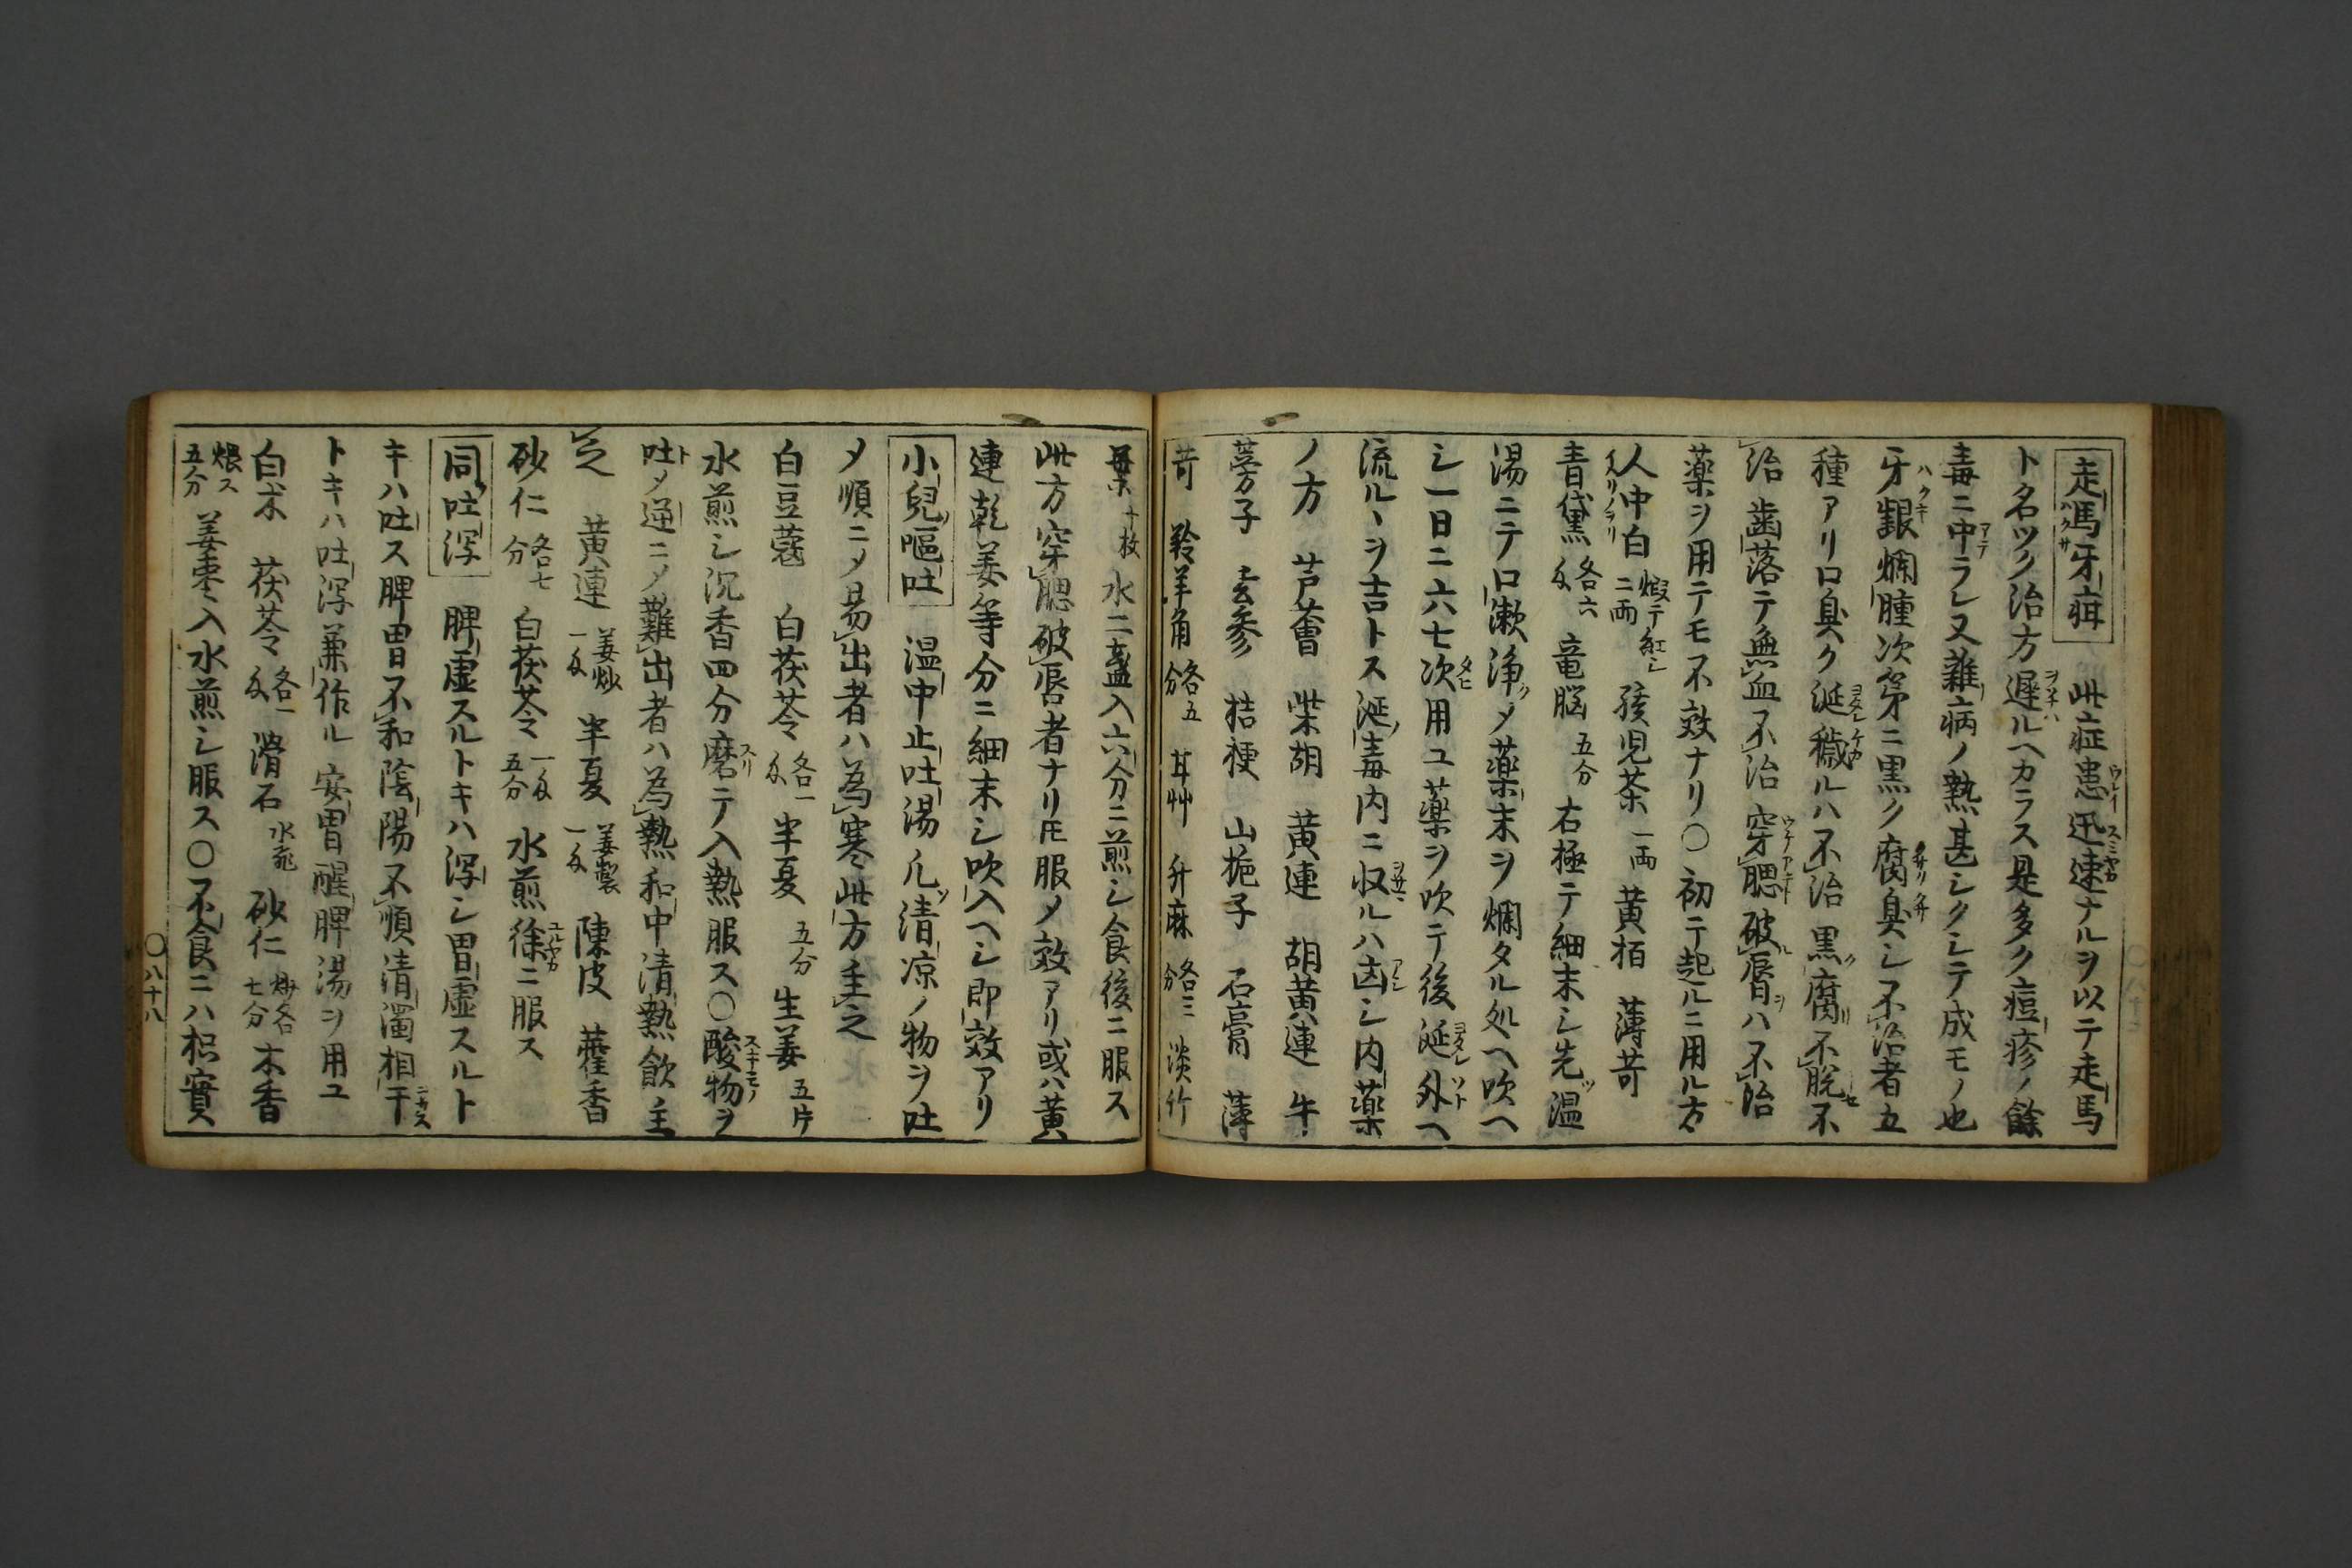 走馬牙疳 此症患迅速ナルヲ以テ走馬
ト名ツク治方遲ルヘカラス是多ク痘疹ノ餘
毒ニ中ラレ又雜病ノ熱甚シクシテ成モノ也
牙齦爛腫次第ニ黒ク腐臭シ不治者五
種アリ口臭ク涎穢ルハ不治 黒腐不脱不
治 歯落テ無血不治 穿腮破唇ハ不治
薬ヲ用テモ不效ナリ○初テ起ルニ用ル方
人中白 煅テ紅シ二両 孩児茶 一両 黄栢 薄苛
青黛 各六 竜脳 五分 右極テ細末シ先温
湯ニテ口漱浄メ薬末ヲ爛タル処ヘ吹ヘ
シ一日ニ六七次用ユ薬ヲ吹テ後涎外ヘ
流ルヽヲ吉トス涎毒内ニ収ルハ凶シ内薬
ノ方 芦薈 柴胡 黄連 胡黄連 牛
蒡子 玄参 桔梗 山梔子 石膏 薄
苛 羚羊角 各五分 甘艸 升麻 各三分 淡竹
葉 十枚 水二盞入六分ニ煎シ食後ニ服ス
此方穿腮破唇者ナリ𪜈服メ效アリ或ハ黄
連乾姜等分ニ細末シ吹入ヘシ即效アリ
小兒嘔吐 温中止吐湯 凡清凉ノ物ヲ吐
メ順ニメ易出者ハ為寒此方主之
白豆蔻 白茯苓 各一 半夏 五分 生姜 五片
水煎シ沉香四分磨テ入熱服ス○酸物ヲ
吐メ逆ニメ難出者ハ為熱和中清熱飲主
之 黄連 姜炒 半夏 姜製 陳皮 藿香
砂仁 各七分 白茯苓 五分 水煎徐ニ服ス
同吐瀉 脾虚スルトキハ瀉シ胃虚スルト
キハ吐ス脾胃不和陰陽不順清濁相干
トキハ吐瀉兼作ル安胃醒脾湯ヲ用ユ
白朮 茯苓 各一 滑石 水飛 砂仁 炒各七分 木香
煨ス五分 姜棗入水煎シ服ス○不食ニハ枳實
○八十八